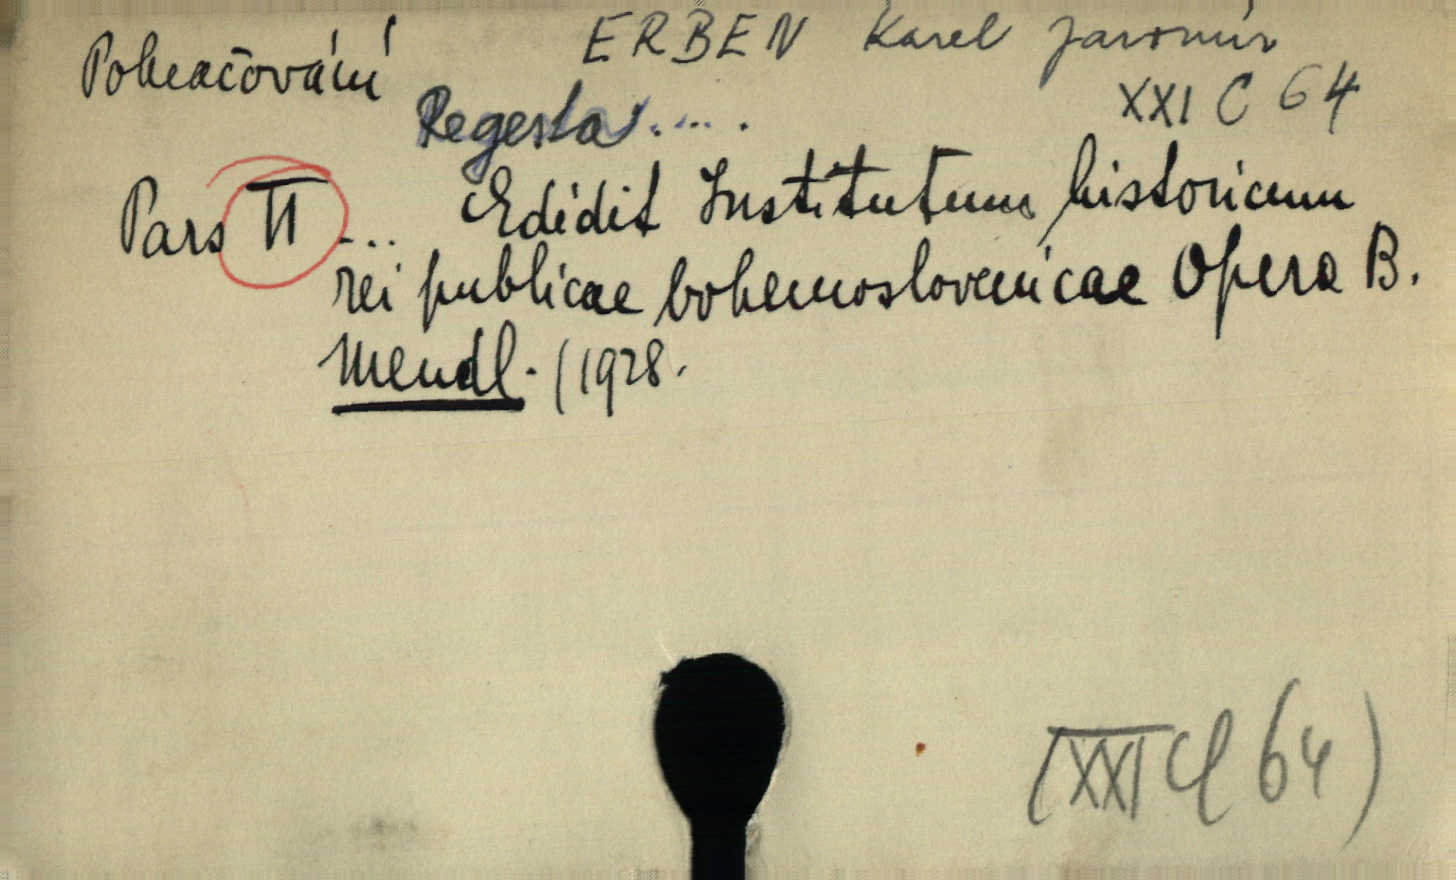 ERBEN Karel Jaromír
Pokračování
XXI C 64
Regesta.....
Pars II ... Edidit Institutum historicum
rei publicae bohemoslovenicae Opera B.
Mendl. (1928.
(XXI C 64)